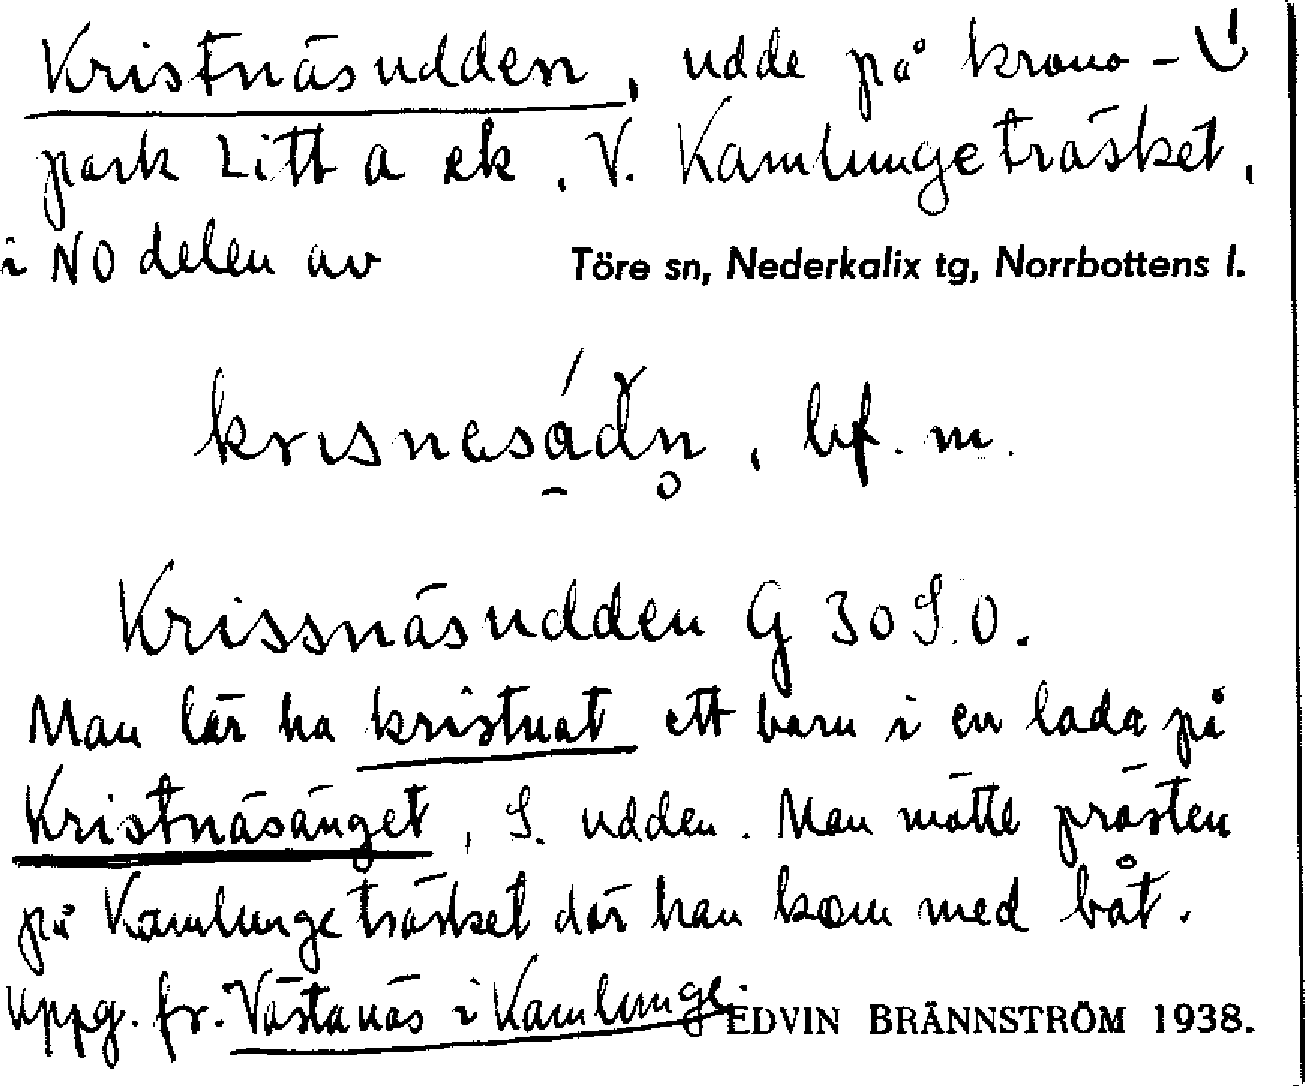 Kristnäsudden, udde på krono-
park Litt a ek, V. Kamlungeträsket,
i NO delen av Töre sn, Nederkalix tg, Norrbottens l.
krısnesádn, bf. m.
Krissnäsudden G 30 S.O.
Man lär ha kristnat ett barn i en lada på
Kristnäsänget, S. udden. Man mötte prästen
på Kamlungeträsket där han kom med båt.
Uppg. fr. Västanäs i Kamlunge.
EDVIN BRÄNNSTRÖM 1938.